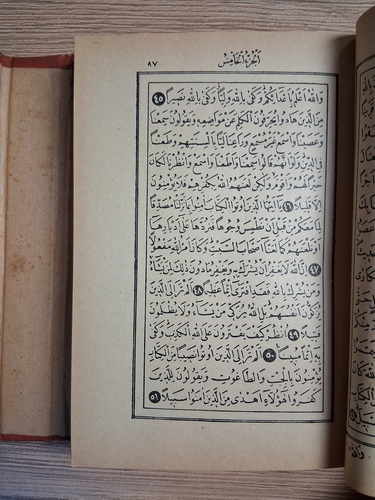 ٨٧ الجزء الخامس
وَاللهُ اَعْلَمُ بِاَعْدَائِكُمْ وَكَفٰى بِاللهِ وَلِيًّا وَكَفٰى بِاللهِ نَصِيرًا ٤٥
مِنَ الَّذِينَ هَادُوا يُحَرِّفُونَ الْكَلِمَ عَنْ مَوَاضِعِهِ وَيَقُولُونَ سَمِعْنَا
وَعَصَيْنَا وَاسْمَعْ غَيْرَ مُسْمَعٍ وَرَاعِنَا لَيًّا بِاَلْسِنَتِهِمْ وَطَعْنًا
فِي الدِّينِ وَلَوْ اَنَّهُمْ قَالُوا سَمِعْنَا وَاَطَعْنَا وَاسْمَعْ وَانْظُرْنَا لَكَانَ
خَيْرًا لَهُمْ وَاَقْوَمَ وَلٰكِنْ لَعَنَهُمُ اللهُ بِكُفْرِهِمْ فَلَا يُؤْمِنُونَ
اِلَّا قَلِيلًا ٤٦ يَا اَيُّهَا الَّذِينَ اُوتُوا الْكِتَابَ اٰمِنُوا بِمَا نَزَّلْنَا مُصَدِّقًا
لِمَا مَعَكُمْ مِنْ قَبْلِ اَنْ نَطْمِسَ وُجُوهًا فَنَرُدَّهَا عَلٰى اَدْبَارِهَا
اَوْ نَلْعَنَهُمْ كَمَا لَعَنَّا اَصْحَابَ السَّبْتِ وَكَانَ اَمْرُ اللهِ مَفْعُولًا
٤٧ اِنَّ اللهَ لَا يَغْفِرُ اَنْ يُشْرَكَ بِهِ وَيَغْفِرُ مَا دُونَ ذٰلِكَ لِمَنْ يَشَاءُ
وَمَنْ يُشْرِكْ بِاللهِ فَقَدِ افْتَرٰى اِثْمًا عَظِيمًا ٤٨ اَلَمْ تَرَ اِلَى الَّذِينَ
يُزَكُّونَ اَنْفُسَهُمْ بَلِ اللهُ يُزَكِّي مَنْ يَشَاءُ وَلَا يُظْلَمُونَ
فَتِيلًا ٤٩ اُنْظُرْ كَيْفَ يَفْتَرُونَ عَلَى اللهِ الْكَذِبَ وَكَفٰى
بِهِ اِثْمًا مُبِينًا ٥٠ اَلَمْ تَرَ اِلَى الَّذِينَ اُوتُوا نَصِيبًا مِنَ الْكِتَابِ
يُؤْمِنُونَ بِالْجِبْتِ وَالطَّاغُوتِ وَيَقُولُونَ لِلَّذِينَ
كَفَرُوا هٰؤُلَاءِ اَهْدٰى مِنَ الَّذِينَ اٰمَنُوا سَبِيلًا ٥١